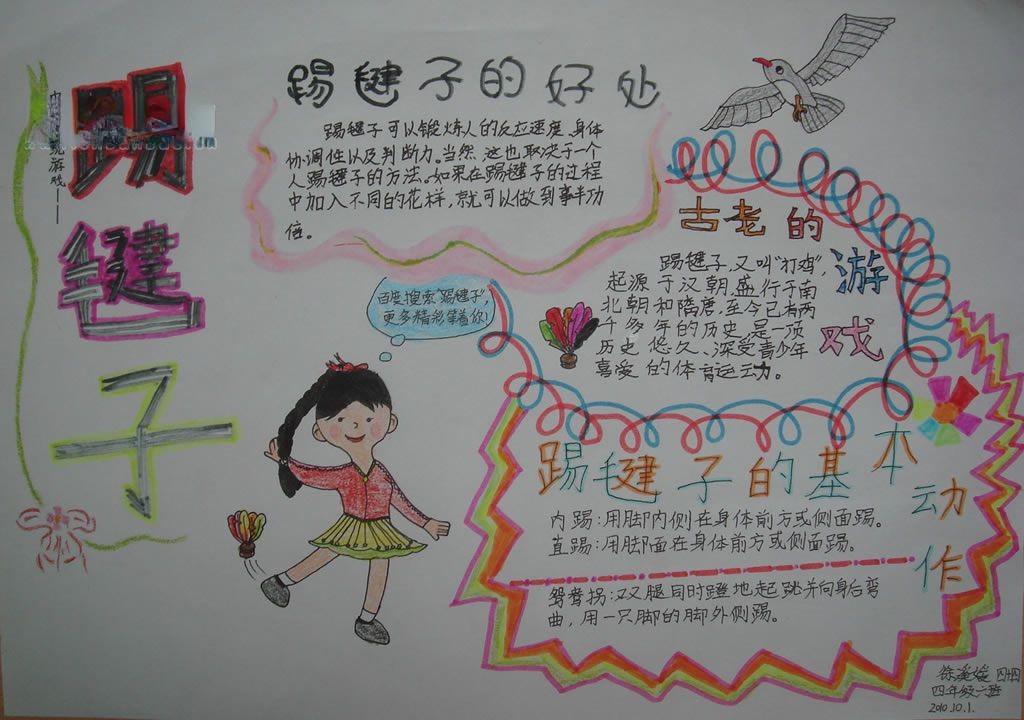 踢毽子
游戏——
踢毽子的好处
踢毽子可以锻炼人的反应速度、身体
协调性以及判断力。当然,这也取决于一个
人踢毽子的方法。如果在踢毽子的过程
中加入不同的花样,就可以做到事半功
倍。
古老的
游
戏
踢毽子,又叫“打鸡”,
起源于汉朝,盛行于南
北朝和隋唐,至今已有两
千多年的历史,是一项
历史悠久、深受青少年
喜爱的体育运动。
百度搜索“踢毽子”,
更多精彩等着你!
踢毽子的基本
动
作
内踢:用脚内侧在身体前方或侧面踢。
直踢:用脚面在身体前方或侧面踢。
鸳鸯拐:双腿同时蹬地起跳并向身后弯
曲,用一只脚的脚外侧踢。
四年级六班
2010.10.1.